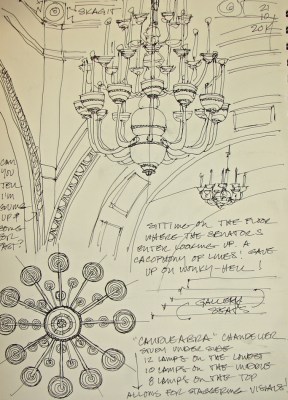 SKAGIT
@
21
10
20
CAN
YOU
TELL
I'M
GIVING
UP &
GOING
FOR
FAST?
SITTING ON THE FLOOR
WHERE THE SENATORS
ENTER LOOKING UP. A
CACOPHONY OF LINES! GAVE
UP ON WONKY-HELL!
GALLERY
SEATS
"CANDLEABRA" CHANDELIER
STUDY UNDER SIDE
12 LAMPS ON THE LOWEST
10 LAMPS ON THE MIDDLE
8 LAMPS ON THE TOP
ALLOWS FOR STAGGERING VISUALS!